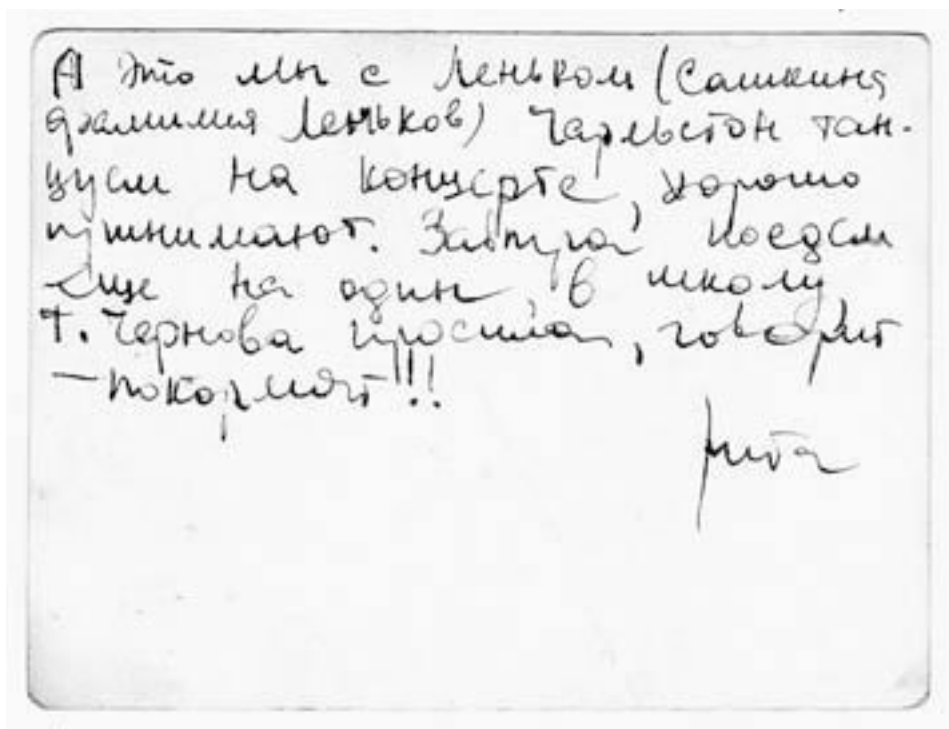 А это мы с Леньком (Сашкина
фамилия Леньков) Чарльстон тан-
цуем на концерте, хорошо
принимают. Завтра поедем
еще на один, в школу
Т. Чернова просила, говорит
– покормят!!!
Рита